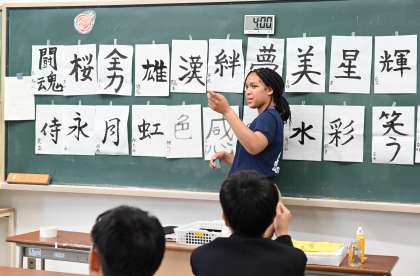 4:00
闘魂 桜 全 雄 漢 絆 夢 美 星 輝
侍 永 月 虹 色 感 水 彩 笑